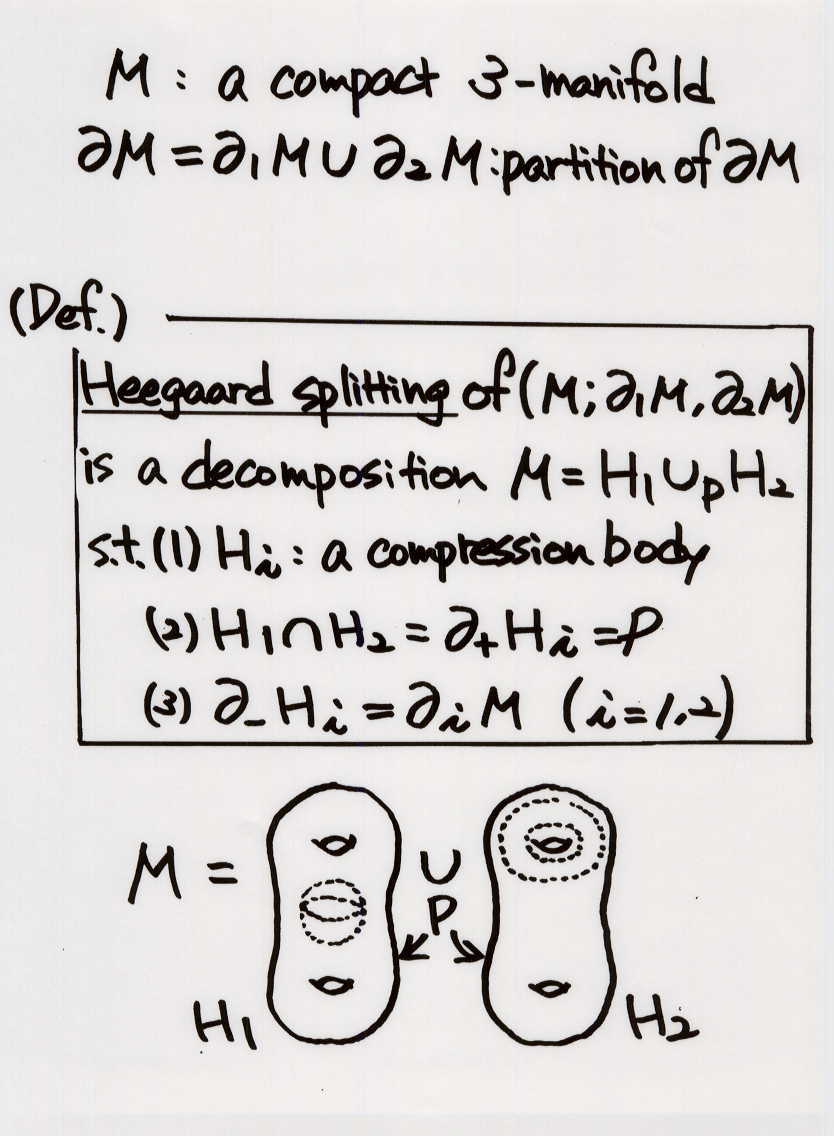 M : a compact 3-manifold
∂M = ∂₁M ∪ ∂₂M : partition of ∂M
(Def.)
Heegaard splitting of (M; ∂₁M, ∂₂M)
is a decomposition M = H₁ ∪ₚ H₂
s.t. (1) Hᵢ : a compression body
(2) H₁ ∩ H₂ = ∂₊Hᵢ = P
(3) ∂₋Hᵢ = ∂ᵢM (i = 1, 2)
M = ∪
P
H₁ H₂